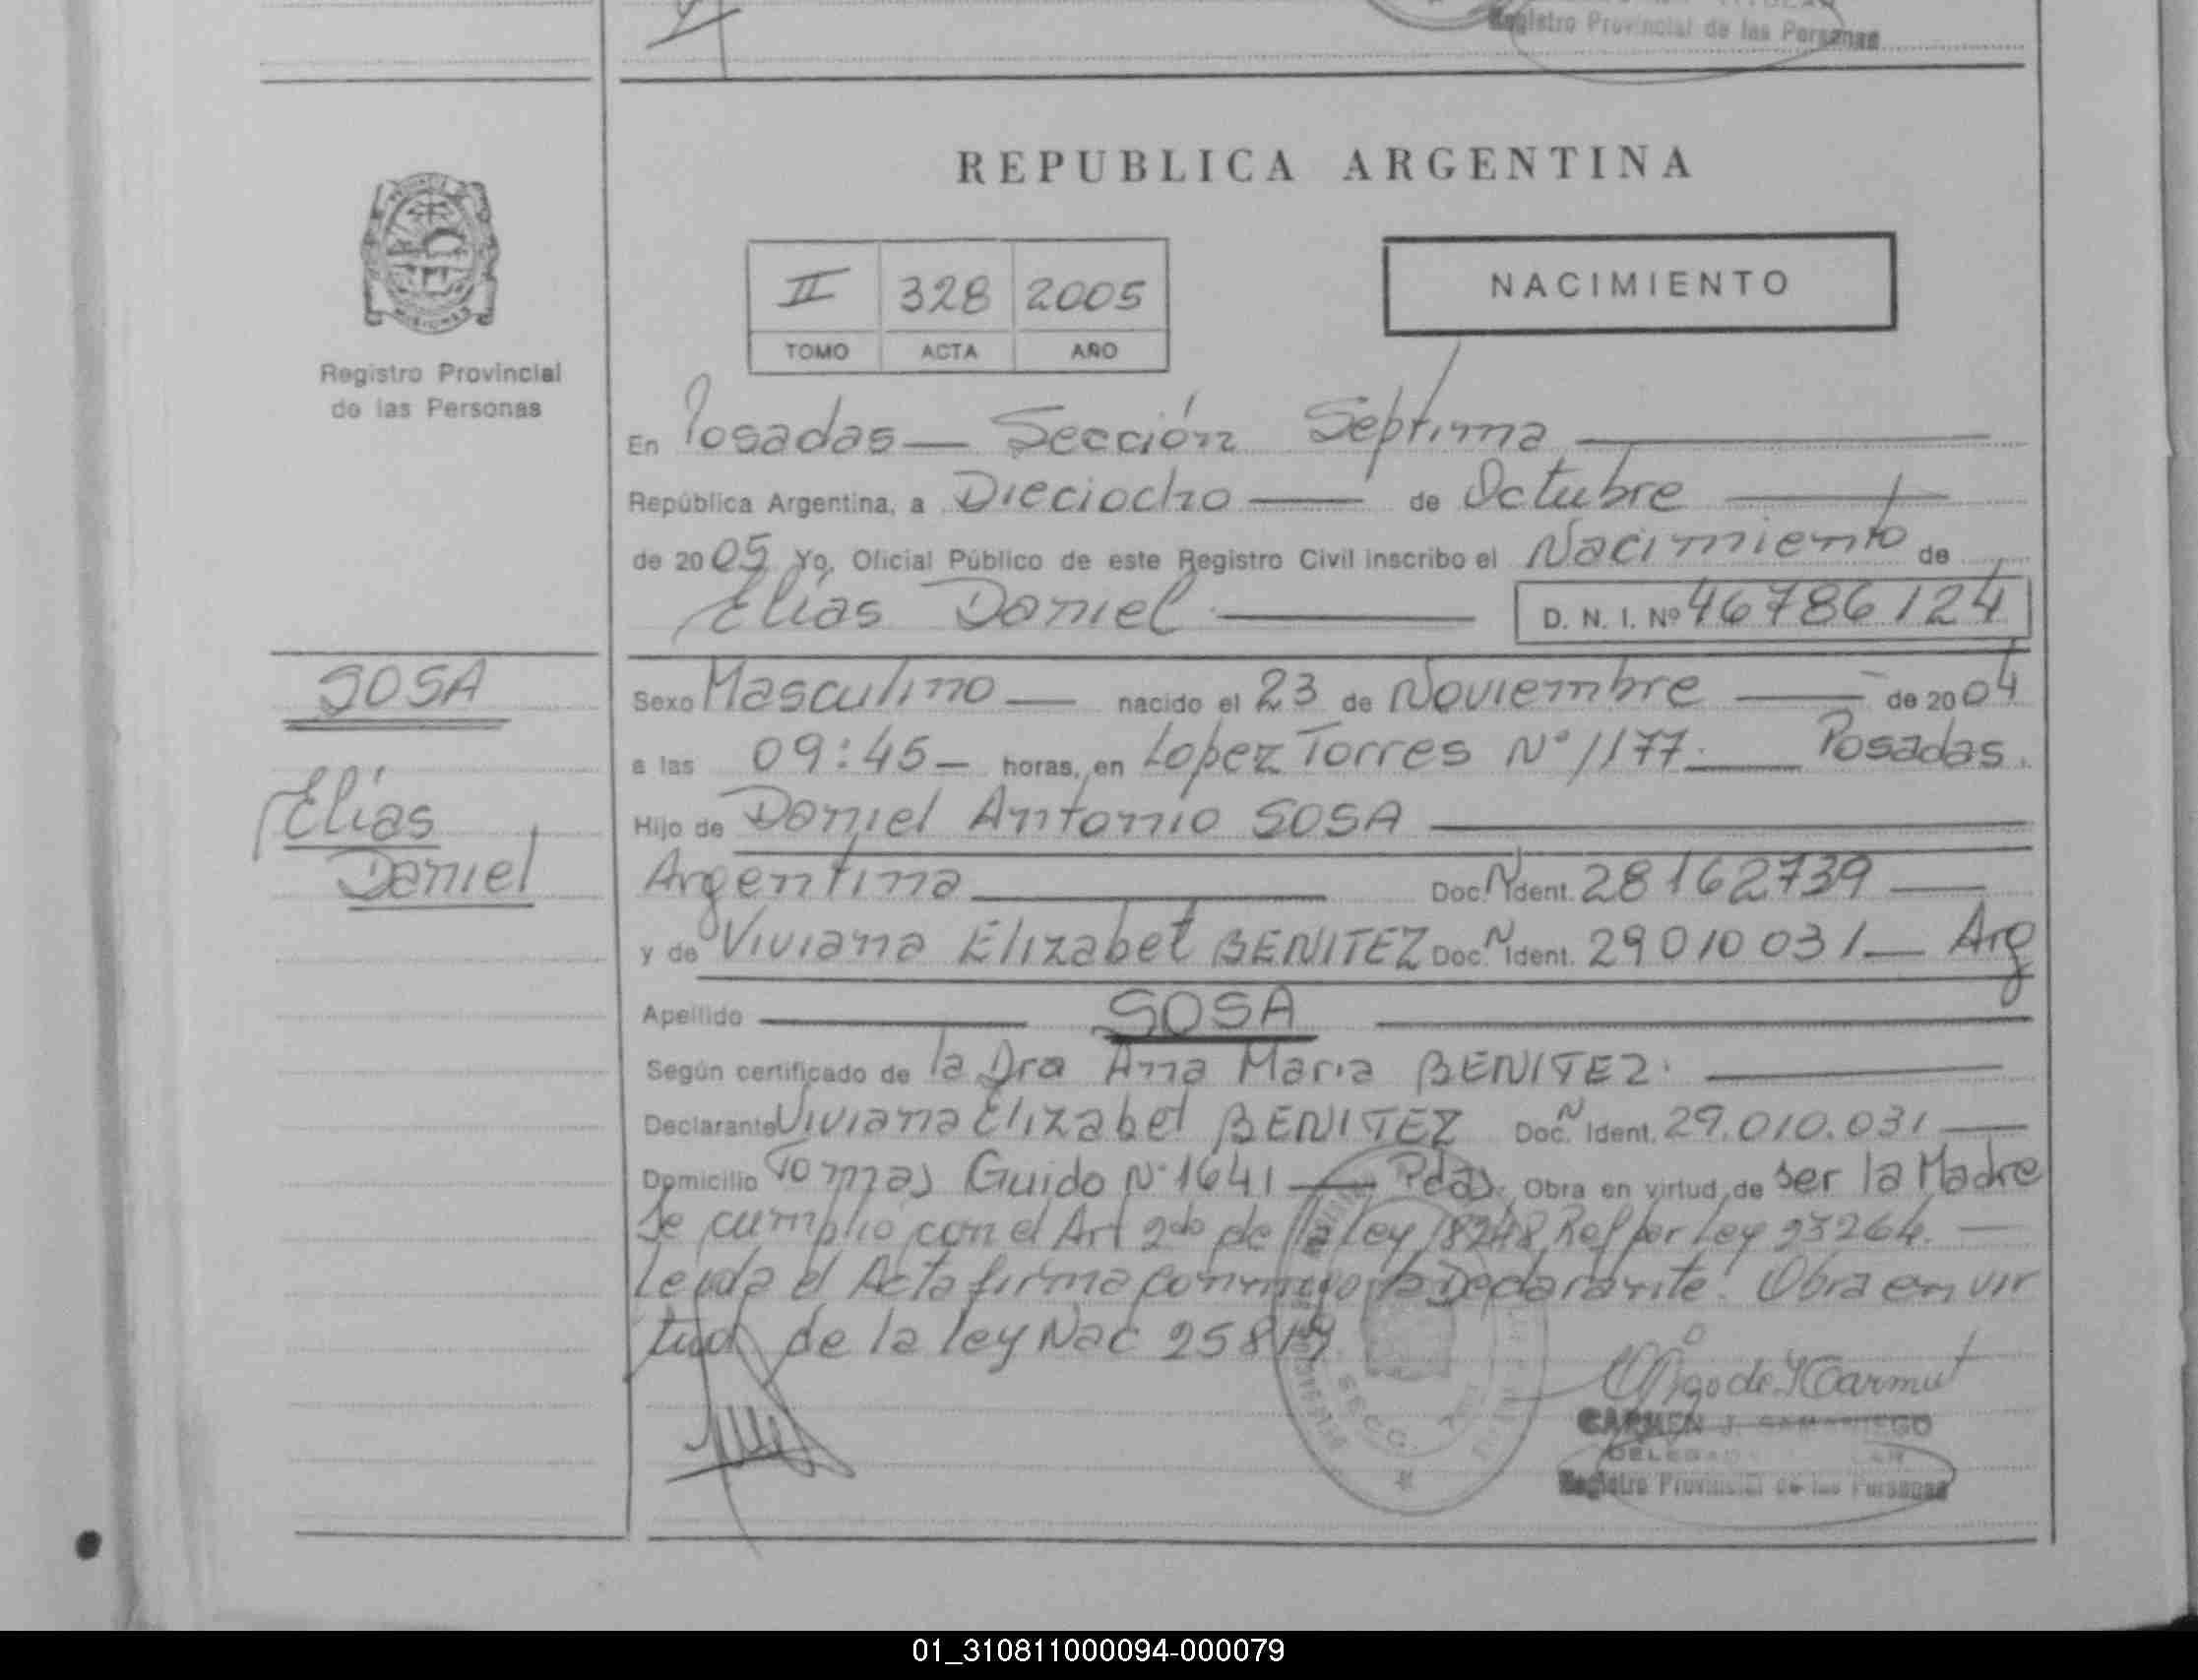 Registro Provincial de las Personas
REPUBLICA ARGENTINA
MISIONES
Registro Provincial
de las Personas
II 328 2005
TOMO ACTA AÑO
NACIMIENTO
En Posadas — Sección Septima
República Argentina, a Dieciocho — de Octubre
de 2005 Yo, Oficial Público de este Registro Civil inscribo el Nacimiento de
Elías Daniel — D. N. I. Nº 46786124
SOSA
Elías
Daniel
Sexo Masculino — nacido el 23 de Noviembre — de 2004
a las 09:45 — horas, en Lopez Torres Nº 1177. — Posadas.
Hijo de Daniel Antonio SOSA
Argentina — Doc. N Ident. 28162739 —
y de Viviana Elizabet BENITEZ Doc. N Ident. 29010031 — Arg
Apellido — SOSA —
Según certificado de la Dra Ana Maria BENITEZ. —
Declarante Viviana Elizabet BENITEZ Doc. N Ident. 29.010.031 —
Domicilio Tomas Guido Nº 1641 — Pdas. Obra en virtud de ser la Madre
Se cumplio con el Art 2do de la ley 18248 Ref por Ley 23264. —
Leida el Acta firma conmigo la Declarante. Obra en vir
tud de la ley Nac 25819
CARMEN J. SAMANIEGO
Registro Provincial de las Personas
01_310811000094-000079